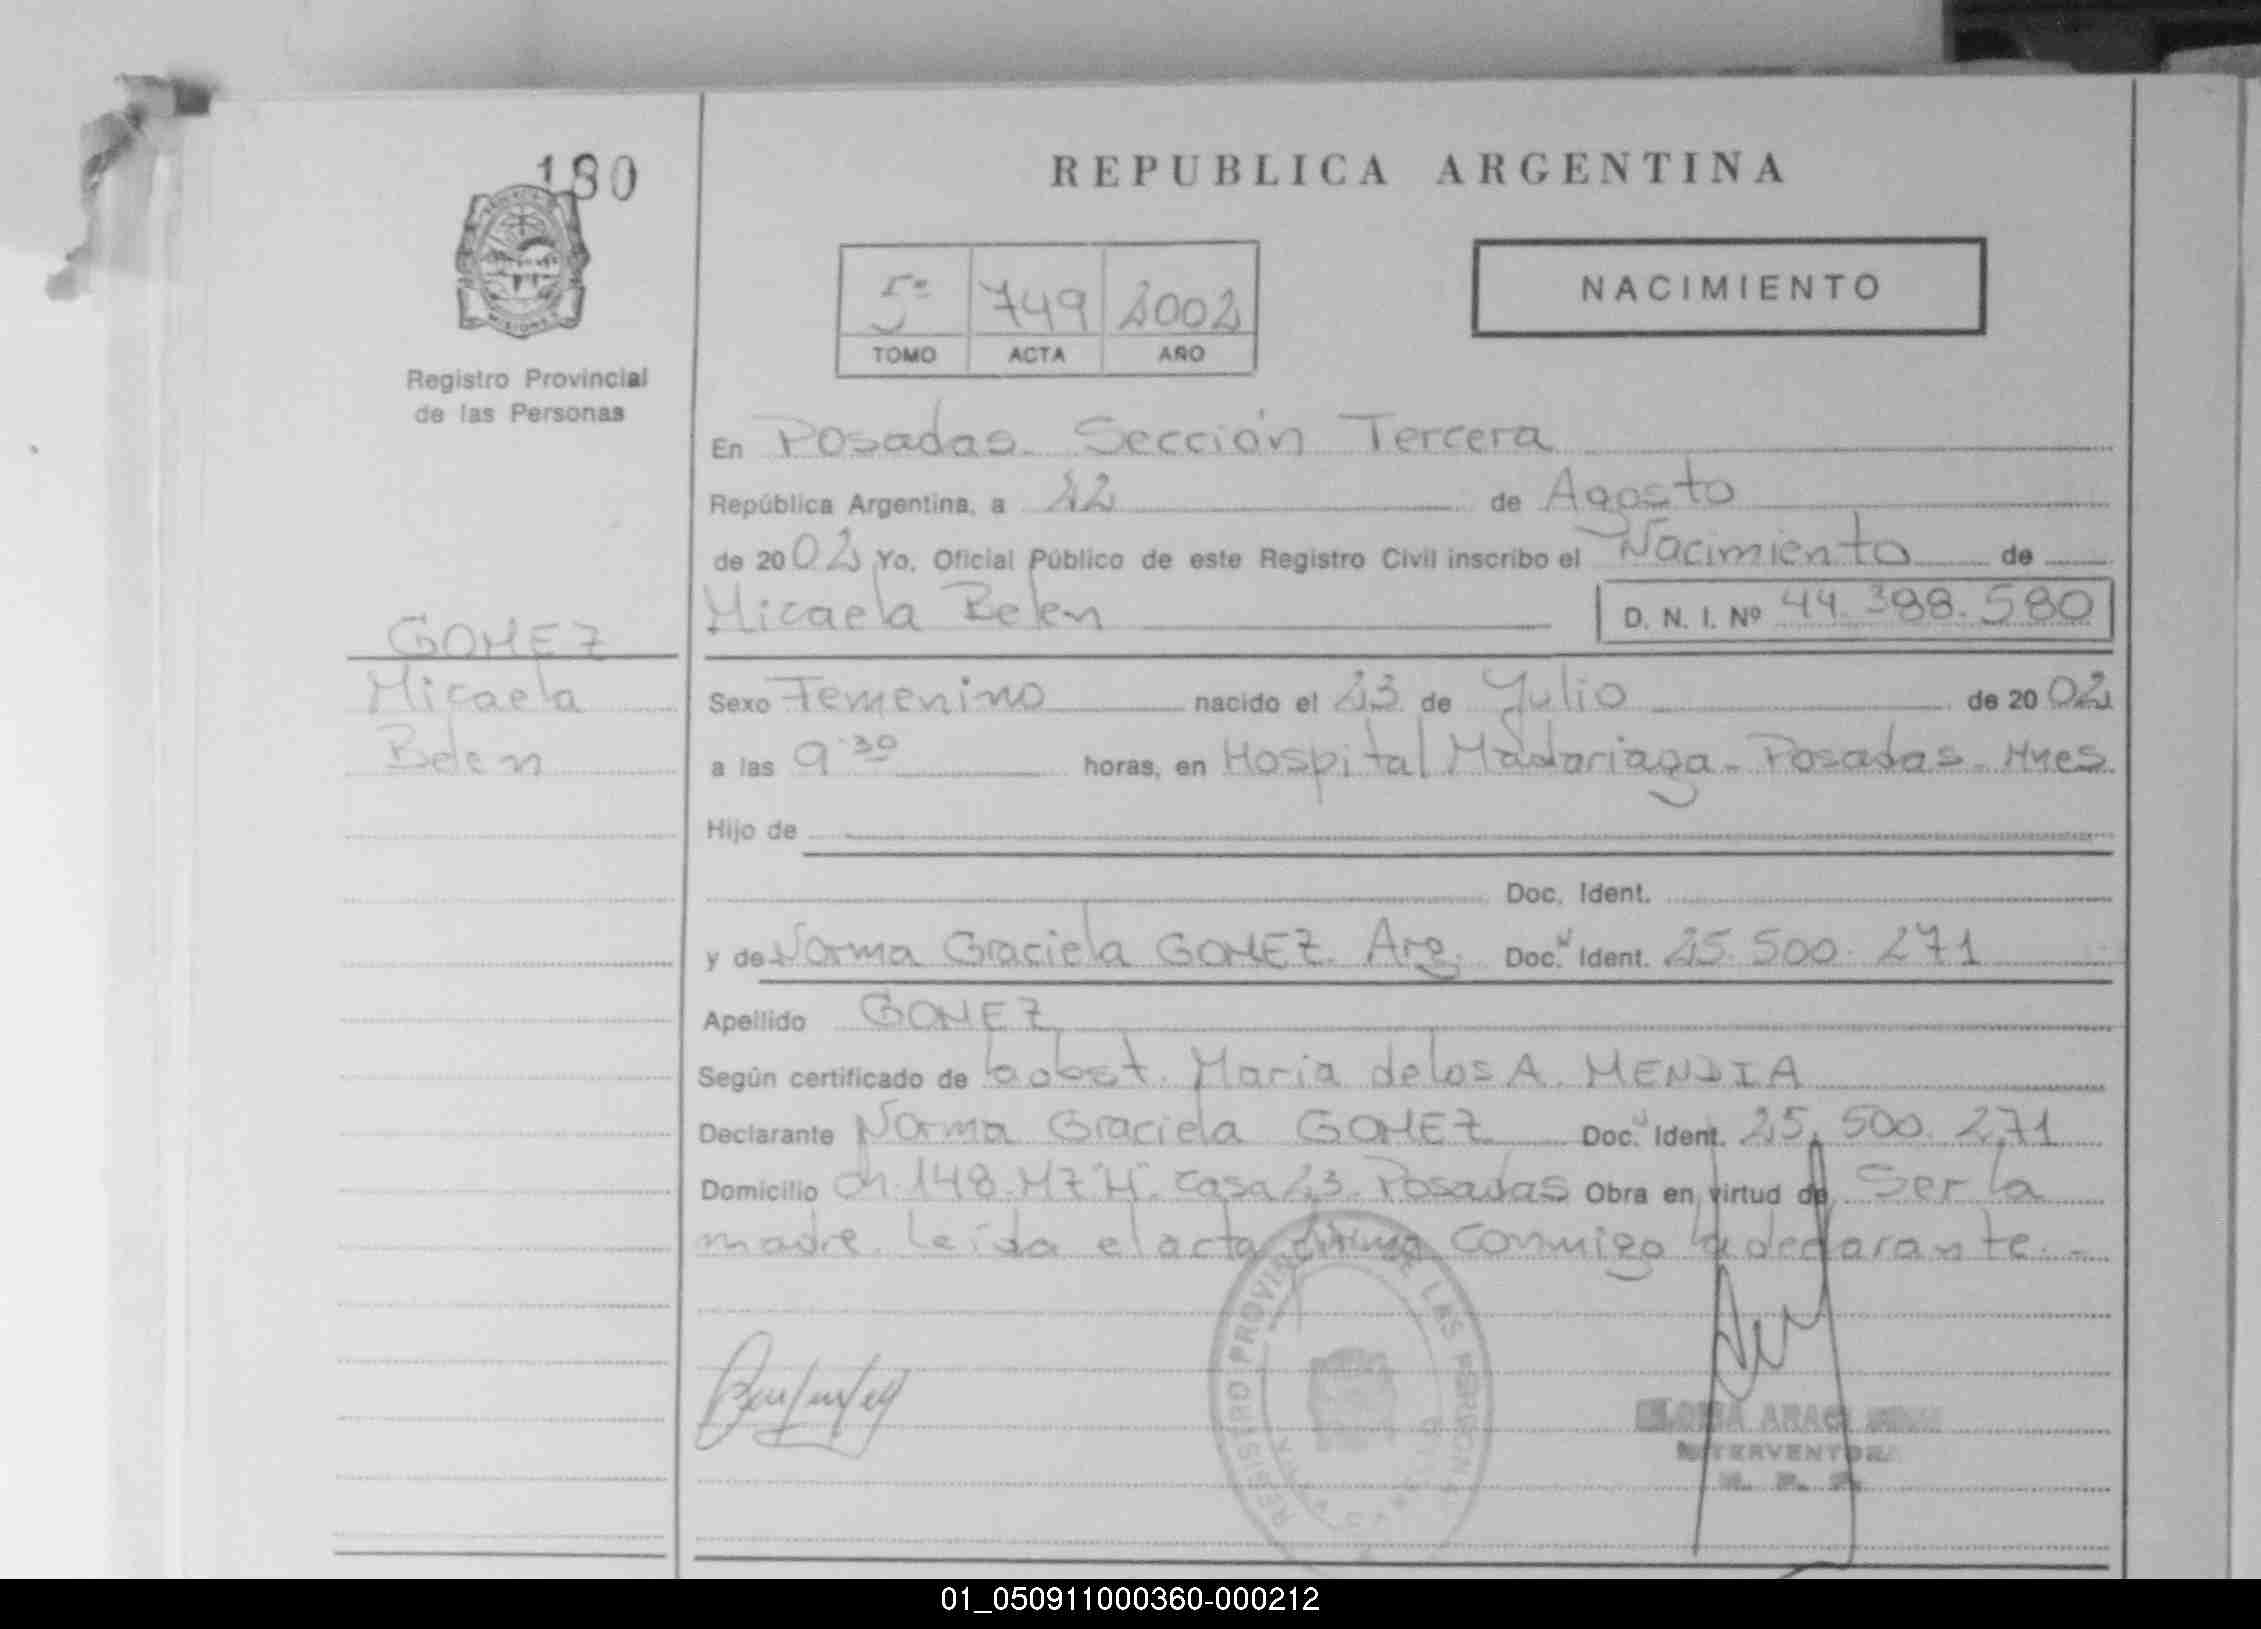 180
REPUBLICA ARGENTINA
NACIMIENTO
5º 749 2002
TOMO ACTA AÑO
Registro Provincial
de las Personas
En Posadas Sección Tercera
República Argentina, a 22 de Agosto
de 2002 Yo, Oficial Público de este Registro Civil inscribo el Nacimiento de
Micaela Belen D. N. I. Nº 44.398.580
GOMEZ
Micaela
Belen
Sexo Femenino nacido el 23 de Julio de 2002
a las 9.30 horas, en Hospital Madariaga - Posadas - Mnes
Hijo de
Doc. Ident.
y de Norma Graciela GOMEZ. Arg. Doc. N Ident. 25.500.271
Apellido GOMEZ
Según certificado de la obst. Maria de los A. MENDIA
Declarante Norma Graciela GOMEZ Doc. N Ident. 25.500.271
Domicilio Ch. 148. MZ "H". Casa 23. Posadas Obra en virtud de Ser la
madre. Leída el acta firma conmigo la declarante. -
REGISTRO PROVINCIAL DE LAS PERSONAS
INTERVENTORA
R. P. P.
01_050911000360-000212